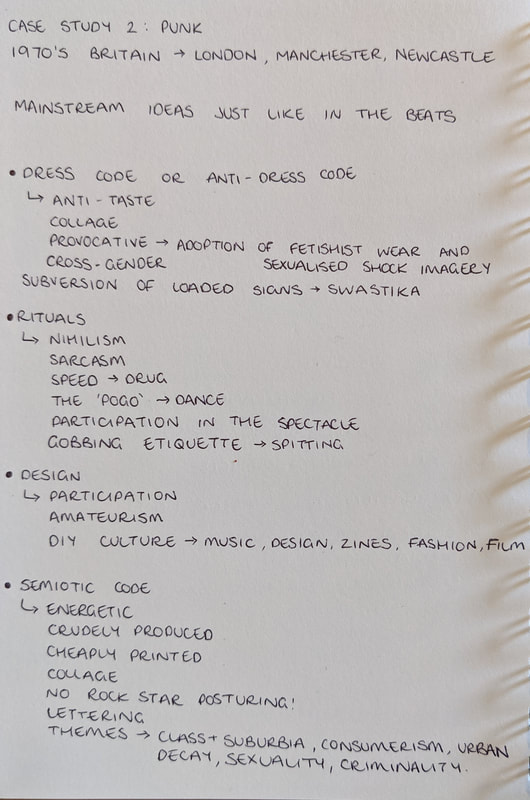 CASE STUDY 2: PUNK
1970'S BRITAIN → LONDON, MANCHESTER, NEWCASTLE
MAINSTREAM IDEAS JUST LIKE IN THE BEATS
• DRESS CODE OR ANTI-DRESS CODE
↳ ANTI-TASTE
COLLAGE
PROVOCATIVE → ADOPTION OF FETISHIST WEAR AND
CROSS-GENDER SEXUALISED SHOCK IMAGERY
SUBVERSION OF LOADED SIGNS → SWASTIKA
• RITUALS
↳ NIHILISM
SARCASM
SPEED → DRUG
THE 'POGO' → DANCE
PARTICIPATION IN THE SPECTACLE
GOBBING ETIQUETTE → SPITTING
• DESIGN
↳ PARTICIPATION
AMATEURISM
DIY CULTURE → MUSIC, DESIGN, ZINES, FASHION, FILM
• SEMIOTIC CODE
↳ ENERGETIC
CRUDELY PRODUCED
CHEAPLY PRINTED
COLLAGE
NO ROCK STAR POSTURING!
LETTERING
THEMES → CLASS + SUBURBIA, CONSUMERISM, URBAN
DECAY, SEXUALITY, CRIMINALITY.